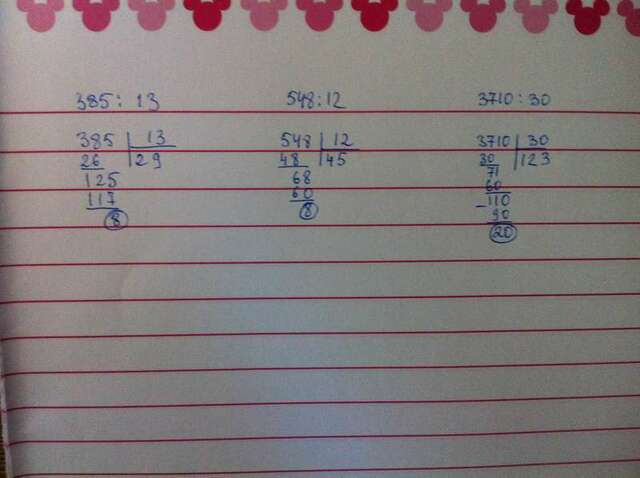 385 : 13
385 | 13
26 | 29
125
117
8
548 : 12
548 | 12
48 | 45
68
60
8
3710 : 30
3710 | 30
30 | 123
71
60
-110
90
20